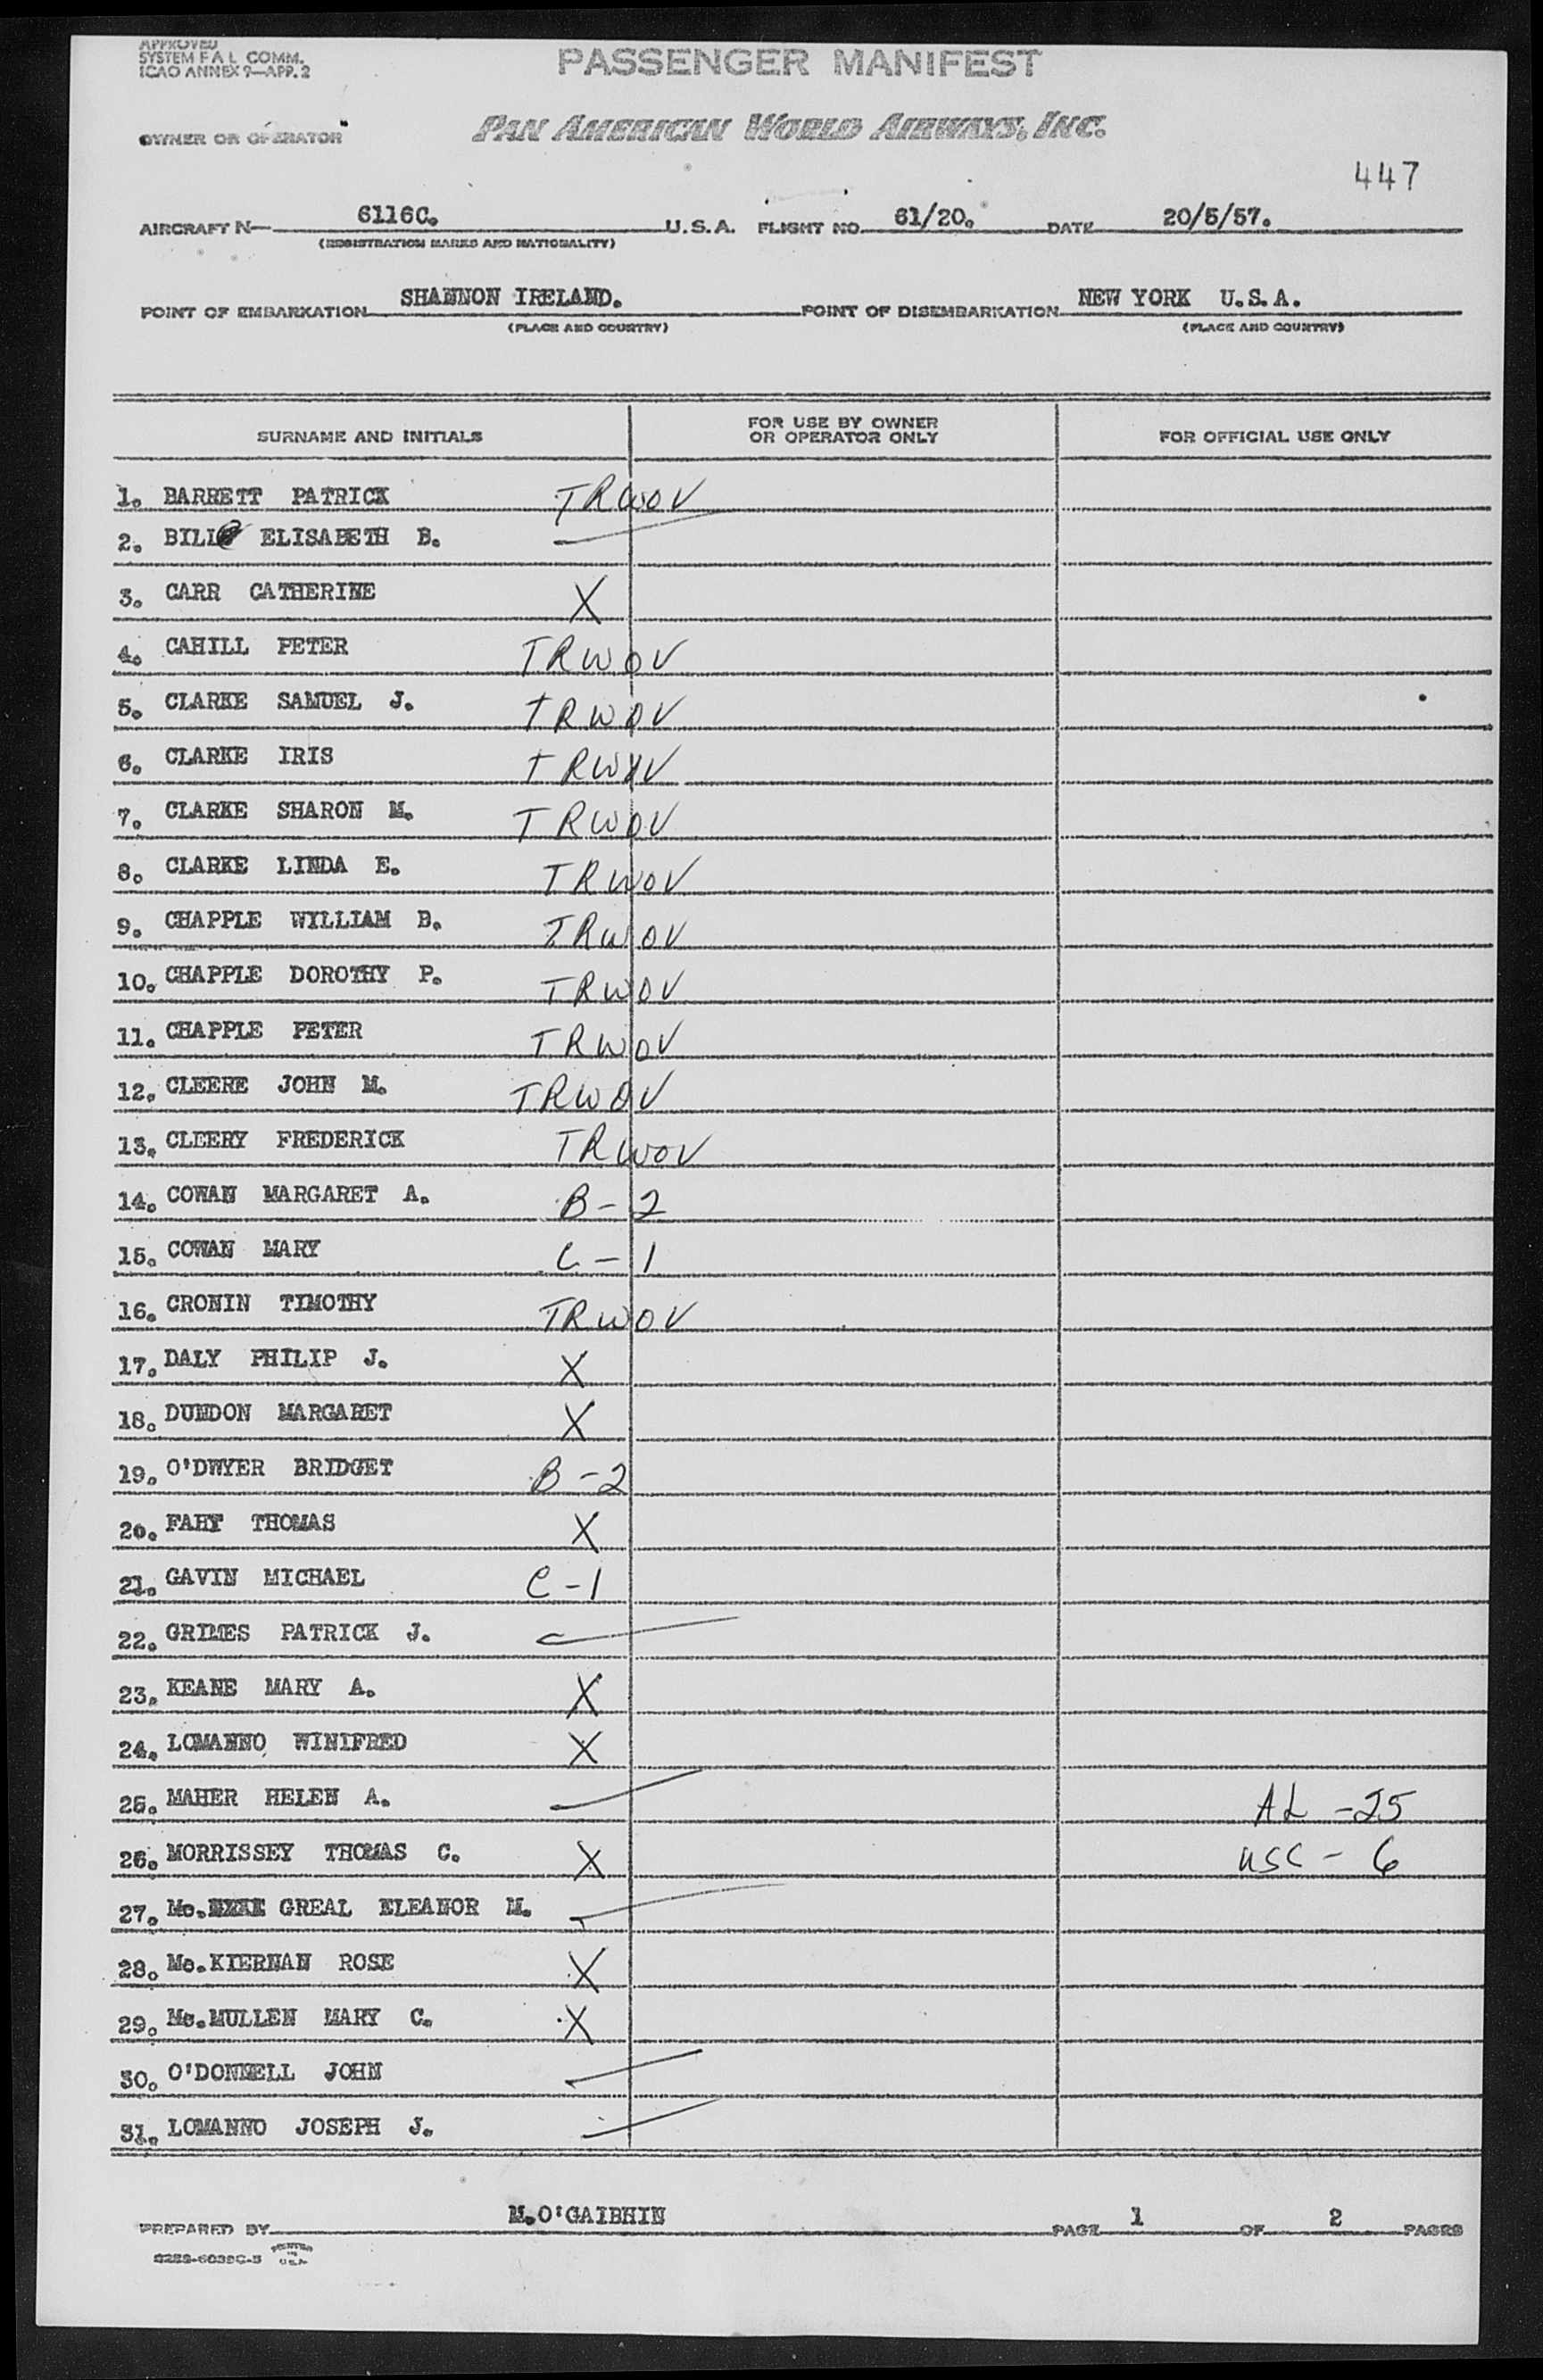 APPROVED
SYSTEM F A L COMM.
ICAO ANNEX 9—APP. 2
PASSENGER MANIFEST
OWNER OR OPERATOR
PAN AMERICAN WORLD AIRWAYS, INC.
447
AIRCRAFT N— 6116C. U.S.A. FLIGHT NO. 61/20. DATE 20/5/57.
(REGISTRATION MARKS AND NATIONALITY)
POINT OF EMBARKATION SHANNON IRELAND. POINT OF DISEMBARKATION NEW YORK U.S.A.
(PLACE AND COUNTRY) (PLACE AND COUNTRY)
SURNAME AND INITIALS FOR USE BY OWNER OR OPERATOR ONLY FOR OFFICIAL USE ONLY
1. BARRETT PATRICK TRWOV
2. ELISABETH B.
3. CARR CATHERINE X
4. CAHILL PETER TRWOV
5. CLARKE SAMUEL J. TRWOV
6. CLARKE IRIS TRWOV
7. CLARKE SHARON M. TRWOV
8. CLARKE LINDA E. TRWOV
9. CHAPPLE WILLIAM B. TRWOV
10. CHAPPLE DOROTHY P. TRWOV
11. CHAPPLE PETER TRWOV
12. CLEERE JOHN M. TRWOV
13. CLEERY FREDERICK TRWOV
14. COWAN MARGARET A. B-2
15. COWAN MARY C-1
16. CRONIN TIMOTHY TRWOV
17. DALY PHILIP J. X
18. DUNDON MARGARET X
19. O'DWYER BRIDGET B-2
20. FAHY THOMAS X
21. GAVIN MICHAEL C-1
22. GRIMES PATRICK J.
23. KEANE MARY A. X
24. LOMANNO WINIFRED X
25. MAHER HELEN A. AL -25
26. MORRISSEY THOMAS C. X USC - 6
27. Mc. GREAL ELEANOR M.
28. Mc.KIERNAN ROSE X
29. Mc.MULLEN MARY C. X
30. O'DONNELL JOHN
31. LOMANNO JOSEPH J.
PREPARED BY M.O'GAIBHIN PAGE 1 OF 2 PAGES
PRINTED IN U.S.A.